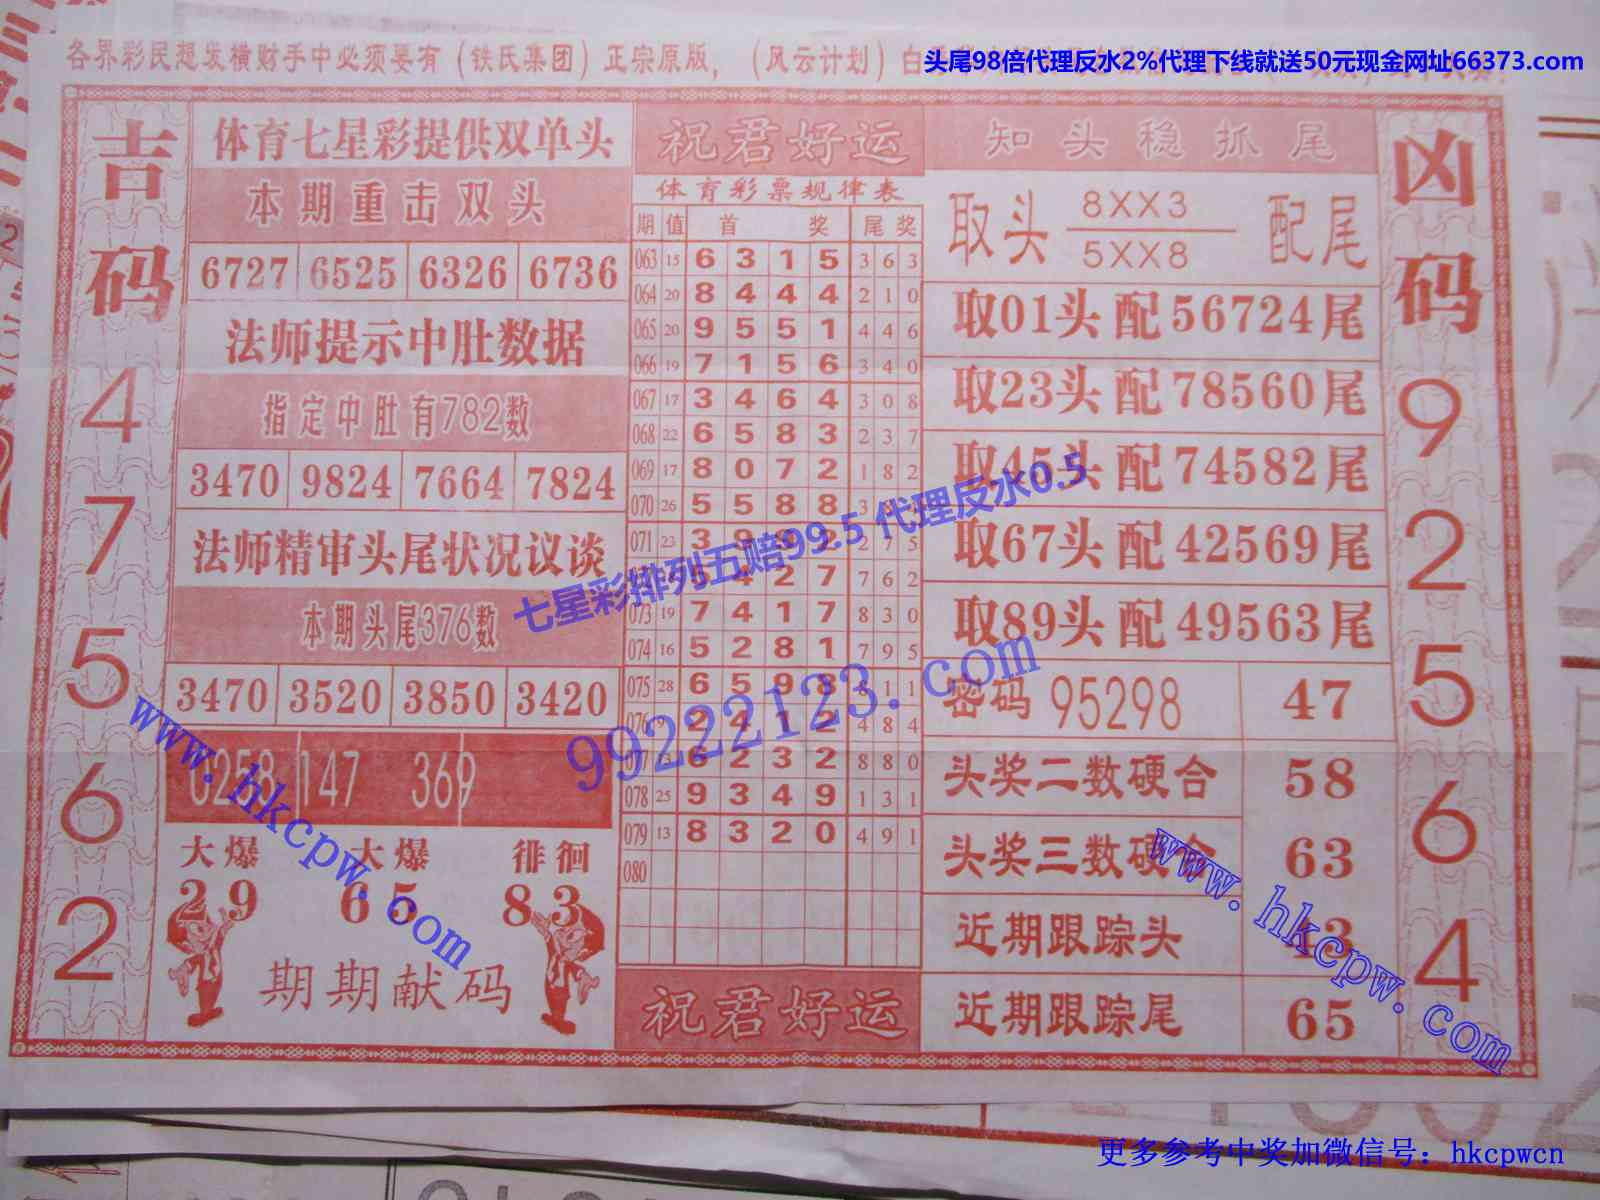 各界彩民想发横财手中必须要有（铁氏集团）正宗原版，（风云计划）白
头尾98倍代理反水2%代理下线就送50元现金网址66373.com
吉码
4
7
5
6
2
体育七星彩提供双单头
本期重击双头
6727 6525 6326 6736
法师提示中肚数据
指定中肚有782数
3470 9824 7664 7824
法师精审头尾状况议谈
本期头尾376数
3470 3520 3850 3420
0258 147 369
大爆 大爆 徘徊
29 65 83
期期献码
祝君好运
体育彩票规律表
期 值 首 奖 尾 奖
063 15 6 3 1 5 3 6 3
064 20 8 4 4 4 2 1 0
065 20 9 5 5 1 4 4 6
066 19 7 1 5 6 3 4 0
067 17 3 4 6 4 3 0 8
068 22 6 5 8 3 2 3 7
069 17 8 0 7 2 1 8 2
070 26 5 5 8 8 3
071 23 3 9 9 2 2 7 5
5 4 2 7 7 6 2
073 19 7 4 1 7 8 3 0
074 16 5 2 8 1 7 9 5
075 28 6 5 9 8 1 1
076 9 2 4 1 2 4 8 4
6 2 3 2 8 8 0
078 25 9 3 4 9 1 3 1
079 13 8 3 2 0 4 9 1
080
祝君好运
知头稳抓尾
取头 8XX3 配尾
5XX8
取01头 配56724尾
取23头 配78560尾
取45头 配74582尾
取67头 配42569尾
取89头 配49563尾
密码 95298 47
头奖二数硬合 58
头奖三数硬合 63
近期跟踪头 43
近期跟踪尾 65
凶码
9
2
5
6
4
七星彩排列五赔99.5 代理反水0.5
99222123.com
www.hkcpw.com
www.hkcpw.com
更多参考中奖加微信号：hkcpwcn